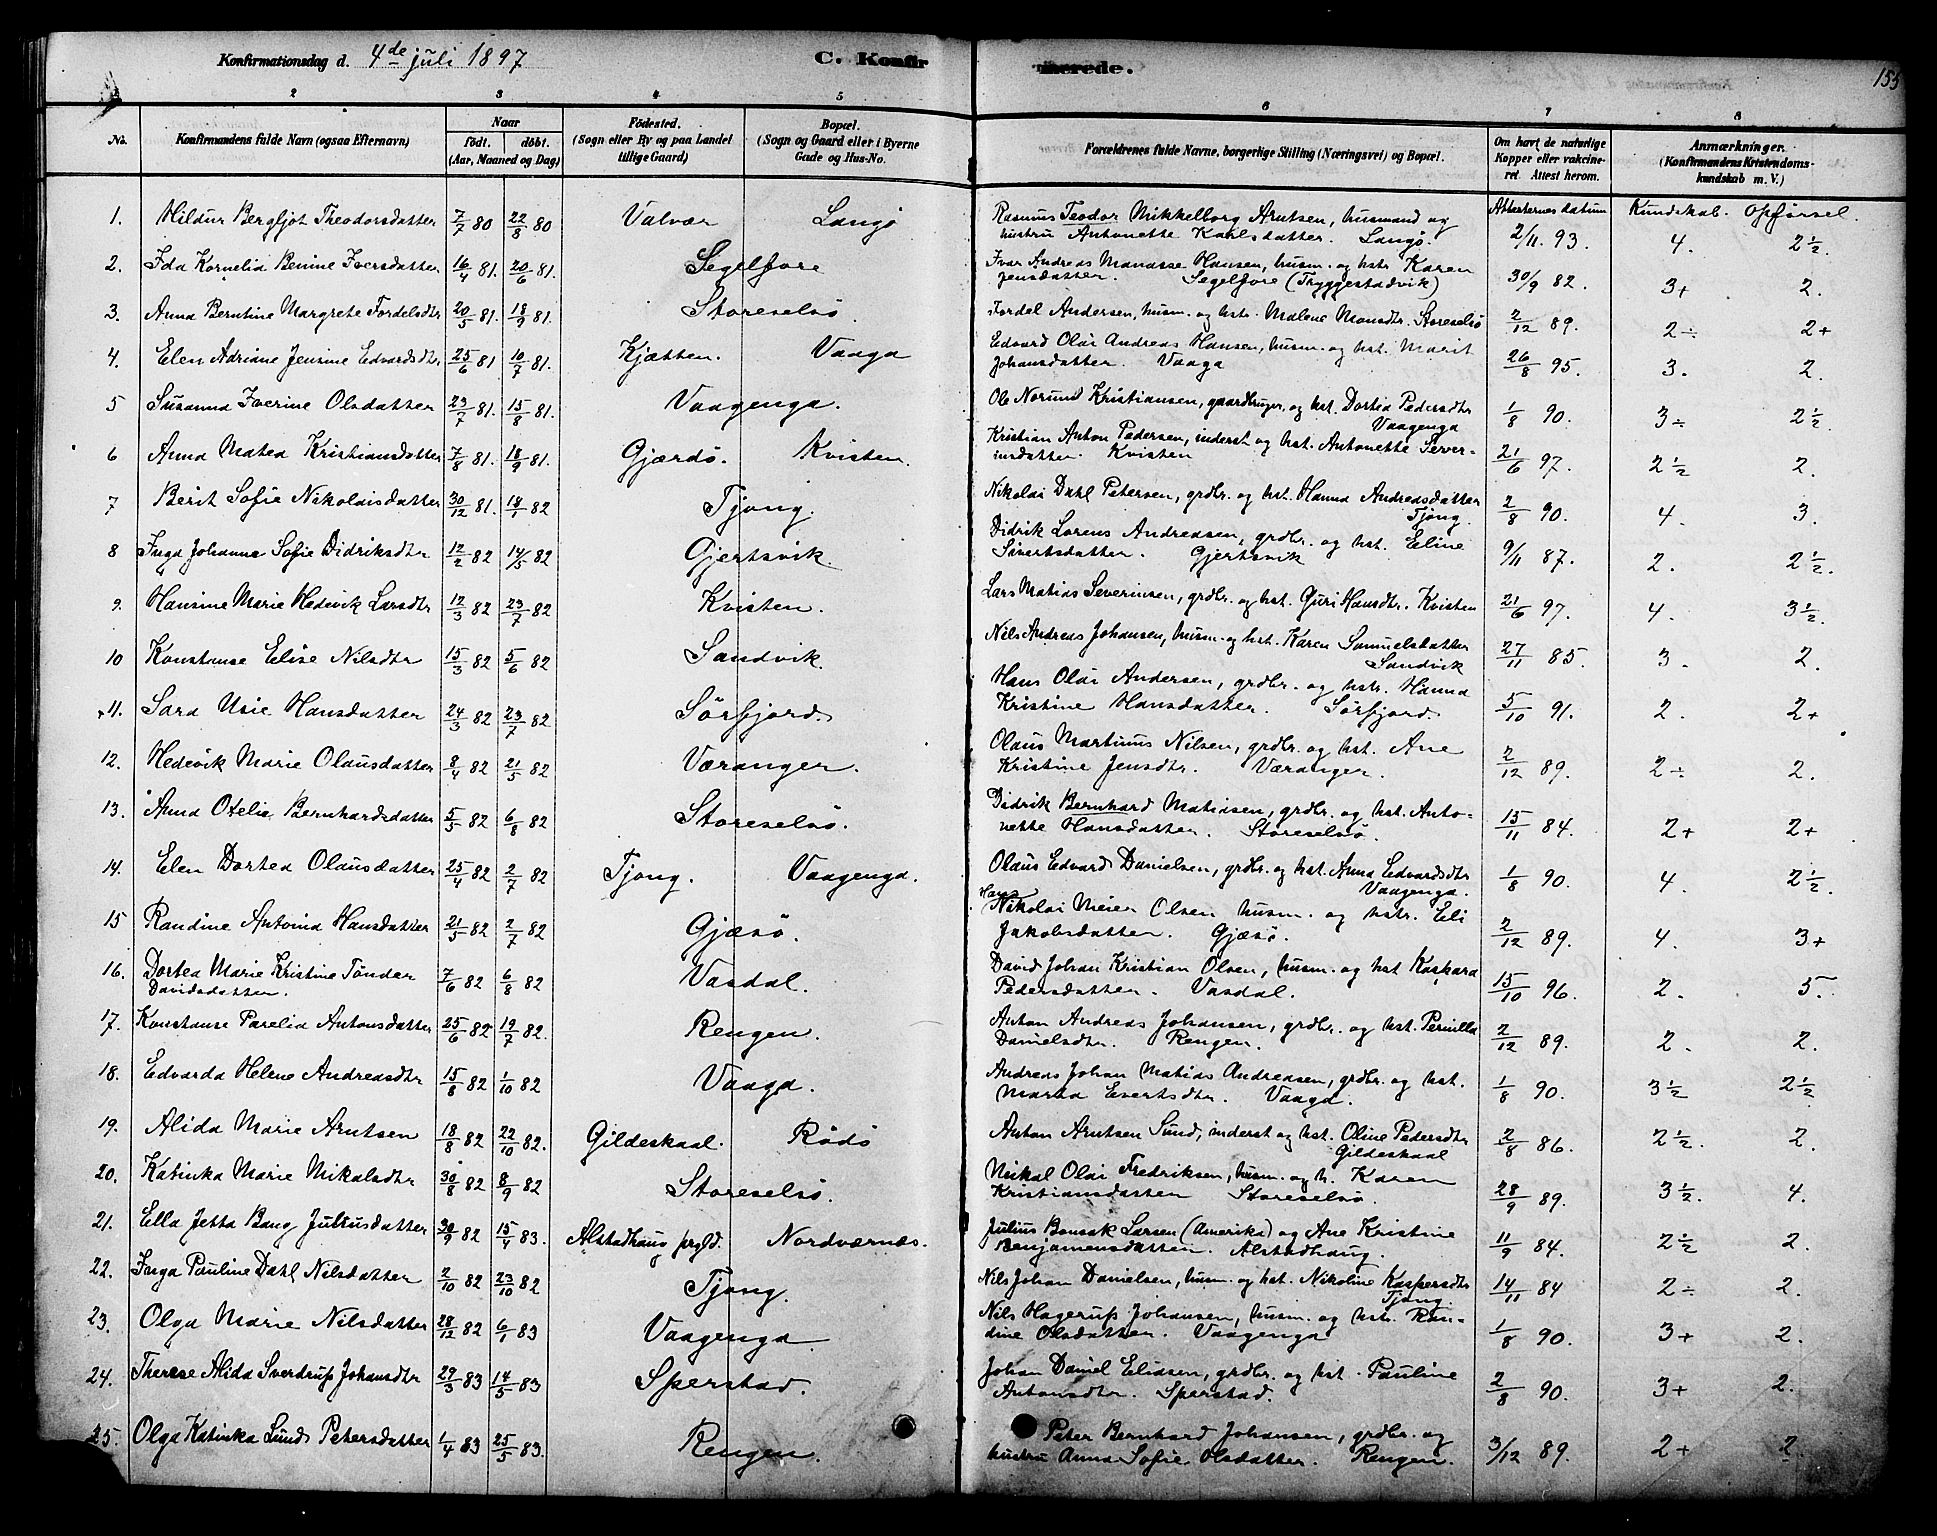 Konfirmationsdag d. 4de juli 1897
C. Konfirmerede.
155
2 3 4 5 6 7 8
No.
Konfirmandens fulde Navn (ogsaa Efternavn)
Naar
födt. döbt.
(Aar, Maaned og Dag)
Födested.
(Sogn eller By og paa Landet
tillige Gaard)
Bopæl.
(Sogn og Gaard eller i Byerne
Gade og Hus-No.
Forældrenes fulde Navne, borgerlige Stilling (Næringsvei) og Bopæl.
Om havt de naturlige
Kopper eller vakcine-
ret. Attest herom.
Anmærkninger.
(Konfirmandens Kristendoms-
kundskab m. V.)
Attesternes datum Kundskab. Opførsel.
1. Hildur Bergljot Theodorsdatter 7/7 80 22/8 80 Valvær Langö Rasmus Teodor Mikkelborg Arntsen, husmand og
hustru Antonette Karlsdatter. Langö. 2/11. 93. 4. 2½.
2. Ida Kornelia Benine Iversdatter 16/4 81. 20/6 81. Segelfore Ivar Andreas Manasse Hansen, husm. og hstr Karen
Jensdatter. Segelfore (Tryggestadvik) 30/9 82. 3+ 2.
3. Anna Berntine Margrete Fordelsdtr 20/5 81. 18/9 81. Storeselsö Fordel Andersen, husm. og hstr. Malene Monsdtr. Storeselsö 2/12 89. 2÷ 2+
4. Elen Adriane Jensine Edvardsdtr 25/6 81 10/7 81. Kjætten. Vaaga Edvard Olai Andreas Hansen, husm. og hst. Marit
Johansdatter. Vaaga 26/8 95. 3. 2.
5 Susanna Iverine Olsdatter 23/7 81. 15/8 81. Vaagenga. Ole Norum Kristiansen, gaardbruger, og hst. Dortea Pedersdtr
Vaagenga 1/8 90. 3÷ 2½.
6 Anna Matea Kristiansdatter 7/8 81. 18/9 81. Gjærdö. Kvisten. Kristian Anton Pedersen, inderst og hst. Antonette Sever-
insdatter. Kvisten 21/6 97. 2½ 2.
7 Berit Sofie Nikolaisdatter 30/12 81. 18/1 82 Tjong. Nikolai Dahl Petersen, grdbr. og hst. Hanna Andreasdatter
Tjong. 2/8 90. 4. 3.
8 Inga Johanna Sofie Didriksdtr 12/2 82 14/5 82 Gjertsvik. Didrik Lorens Andreasen, grdbr. og hst. Eline
Sivertsdatter. Gjertsvik 9/11 87. 2. 2½.
9. Hansine Marie Hedevik Larsdtr 12/3 82 23/7 82 Kvisten. Lars Matias Severinsen, grdbr. og hst. Guri Hansdtr. Kvisten 21/6 97. 4. 3½.
10 Konstanse Elise Nilsdtr 15/3 82 5/6 82 Sandvik. Nils Andreas Johansen, husm. og hst. Karen Samuelsdatter
Sandvik 27/11 85. 3. 2.
11. Sara Usie Hansdatter 24/3 82 23/7 82 Sörfjord. Hans Olai Andersen, grdbr. og hstr. Hanna
Kristine Hansdatter. Sörfjord. 5/10 91. 2. 2+
12. Hedevik Marie Olausdatter 8/4 82 21/5 82 Væranger. Olaus Martinus Nilsen, grdbr. og hst. Ane
Kristine Jensdtr. Væranger. 2/12 89. 2÷ 2.
13. Anna Otelie Bernhardsdatter 5/5 82 6/8 82 Storeselsö. Didrik Bernhard Matiasen, grdbr. og hst. Anto-
nette Hansdatter. Storeselsö. 15/11 84. 2+ 2+
14. Elen Dortea Olausdatter 25/4 82 2/7 82 Tjong. Vaagenga. Olaus Edvard Danielsen, grdbr. og hst. Anna Edvardsdtr
Vaagenga. 1/8 90. 4. 2½.
15 Randine Antonia Hansdatter 21/5 82 2/7 82 Gjæsö. Hans Nikolai Meier Olsen husm. og hstr. Eli
Jakobsdatter. Gjæsö. 2/12 89. 4. 3+
16. Dortea Marie Kristine Tönder
Davidsdatter. 7/6 82 6/8 82 Vasdal. David Johan Kristian Olsen, husm. og hst Kaspara
Pedersdatter. Vasdal. 15/10 96. 2. 5.
17. Konstanse Parelia Antonsdatter 25/6 82 19/7 82. Rengen. Anton Andreas Johansen, grdbr. og hst. Pernilla
Danielsdtr. Rengen. 2/12 89. 2. 2.
18. Edvarda Helene Andreasdtr 15/8 82 1/10 82 Vaaga. Andreas Johan Matias Andreasen, grdbr. og hst.
Marta Evertsdtr. Vaaga. 1/8 90. 3½ 2½
19. Alida Marie Arntsen 18/8 82 22/10 82. Gildeskaal. Rödö Anton Arntsen Sund, inderst og hst. Oline Pedersdtr
Gildeskaal 2/8 86. 2½. 2.
20. Katinka Marie Mikalsdtr 30/8 82 8/9 82 Storeselsö. Mikal Olai Fredriksen, husm. og h. Karen
Kristiansdatter Storeselsö. 28/9 89. 3½. 4.
21. Ella Jetta Bang Juliusdatter 30/9 82 15/4 83. Alstadhaug prgld. Nordværnes. Julius Bonsak Larsen (Amerika) og Ane Kristine
Benjamensdatter. Alstadhaug. 11/9 84. 2½ 2.
22. Inga Pauline Dahl Nilsdatter 2/10 82 23/10 82 Tjong. Nils Johan Danielsen, husm. og hst. Nikoline Kaspersdtr
Tjong. 14/11 84 2÷ 2.
23. Olga Marie Nilsdatter 28/12 82 6/1 83 Vaagenga Nils Hagerup Johansen, husm. og hstr. Ran-
dine Olsdatter. Vaagenga 1/8 90. 3+ 2.
24. Therese Alida Sverdrup Johansdtr 29/3 83 14/5 83 Sperstad. Johan Daniel Eliasen, grdbr. og hst. Pauline
Antonsdtr. Sperstad. 2/8 90. 3+ 2.
25. Olga Katinka Lund Petersdatter 1/4 83 25/5 83. Rengen. Peter Bernhard Johansen, grdbr. og
hustru Anna Sofie Olsdatter. Rengen. 3/12 89. 2+ 2.